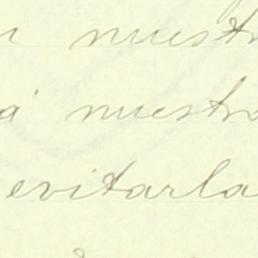 nuestr
á nuestra
evitarla